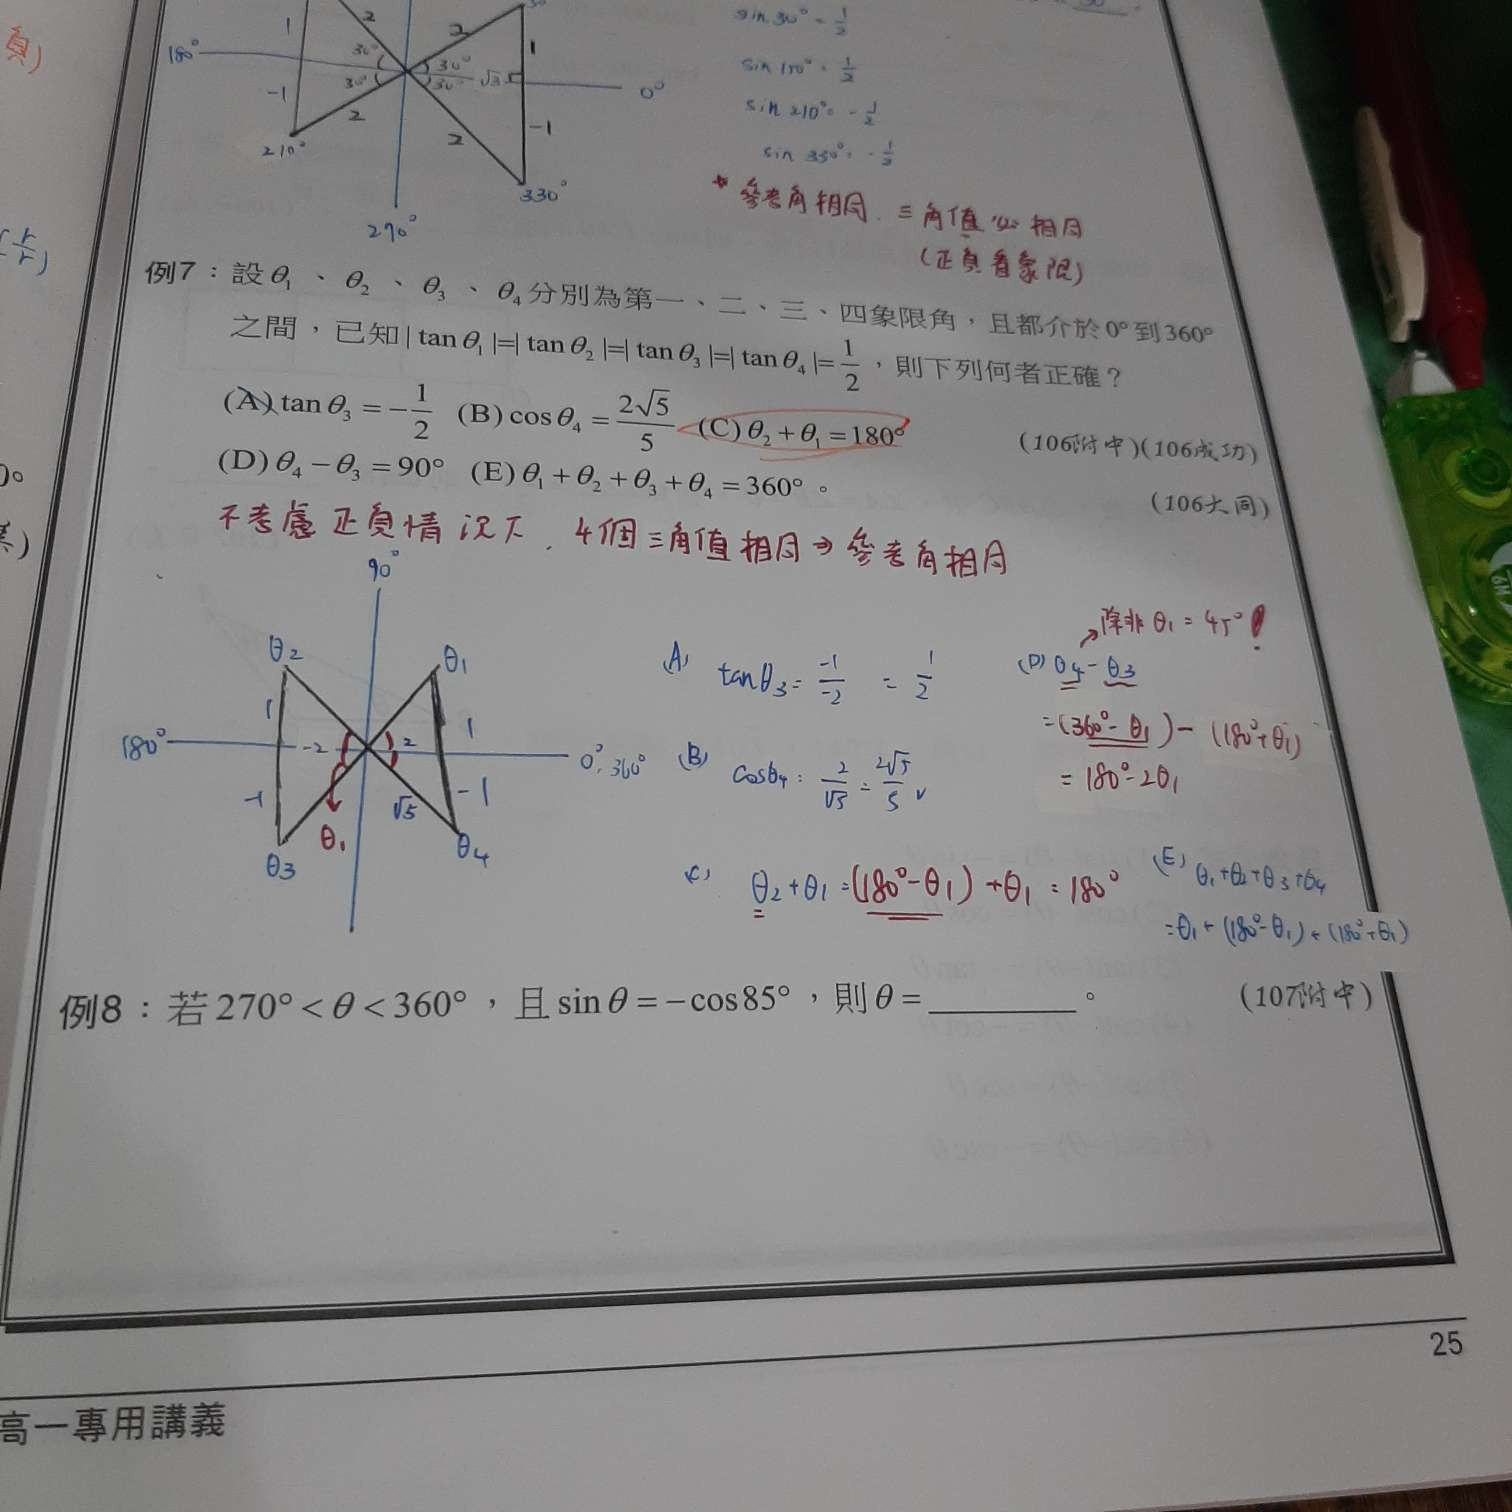 負)
2
2
1
30°
30°
180°
30°
30°
√3
0°
-1
1
-1
2
2
210°
330°
270°
sin 30° = 1/2
sin 150° = 1/2
sin 210° = -1/2
sin 330° = -1/2
* 參考角相同. 三角值必相同
(正負看象限)
例7：設θ₁、θ₂、θ₃、θ₄分別為第一、二、三、四象限角，且都介於0°到360°
之間，已知|tanθ₁|=|tanθ₂|=|tanθ₃|=|tanθ₄|=1/2，則下列何者正確？
(A) tanθ₃ = -1/2 (B) cosθ₄ = 2√5/5 (C) θ₂+θ₁=180° (106附中)(106成功)
(D) θ₄-θ₃=90° (E) θ₁+θ₂+θ₃+θ₄=360°。 (106大同)
不考慮正負情況下, 4個三角值相同⇒參考角相同
90°
θ2
θ1
1
1
180°
-2
2
0°, 360°
-1
-1
√5
θ1
θ3
θ4
(A) tanθ3 = -1/-2 = 1/2
(B) cosθ4 = 2/√5 = 2√5/5 ✓
(C) θ2+θ1=(180°-θ1)+θ1=180°
除非θ1=45°!
(D) θ4-θ3
=(360°-θ1)-(180°+θ1)
=180°-2θ1
(E) θ1+θ2+θ3+θ4
=θ1+(180°-θ1)+(180°+θ1)
例8：若270°<θ<360°，且sinθ=-cos85°，則θ=________。 (107附中)
25
高一專用講義